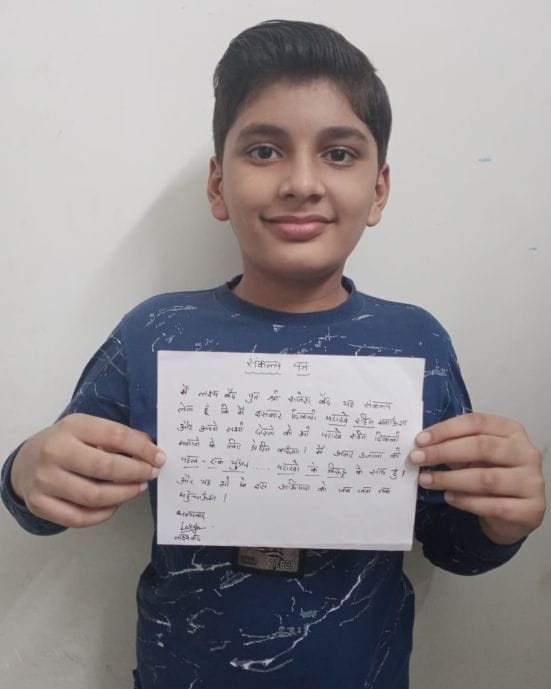 संकल्प पत्र
मैं लक्ष्य वैद पुत्र श्री राजेश वैद यह संकल्प
लेता हूँ कि मैं इसबार दिवाली पटाखे रहित मनाऊँगा
और अपने सभी दोस्तो को भी पटाखे रहित दिवाली
मनाने के लिए प्रेरित करूँगा। मैं अमर उजाला की
पहल - एक युद्ध .... पटाखो के विरुद्ध के साथ हूँ।
और यह भी कि इस अभियान को जन जन तक
पहुँचाऊँगा।
धन्यवाद
लक्ष्य वैद